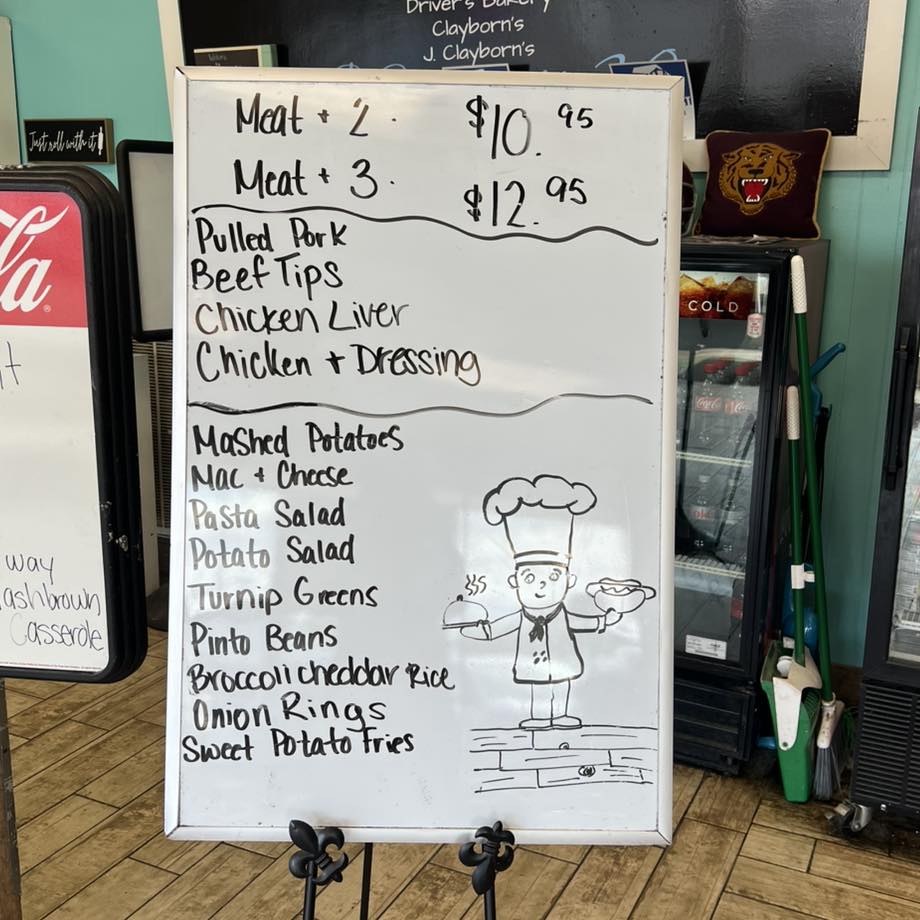 Driver's Bakery
Clayborn's
J. Clayborn's
Just roll with it
Meat + 2. $10.95
Meat + 3. $12.95
Pulled Pork
Beef Tips
Chicken Liver
Chicken + Dressing
Mashed Potatoes
Mac + Cheese
Pasta Salad
Potato Salad
Turnip Greens
Pinto Beans
Broccoli cheddar Rice
Onion Rings
Sweet Potato Fries
way
ashbrown
Casserole
COLD
Coca-Cola